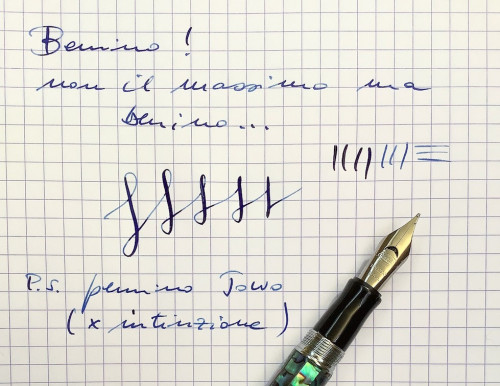 Benino!
non il massimo ma
benino...
P.S. pennino Jowo
(x intinzione)